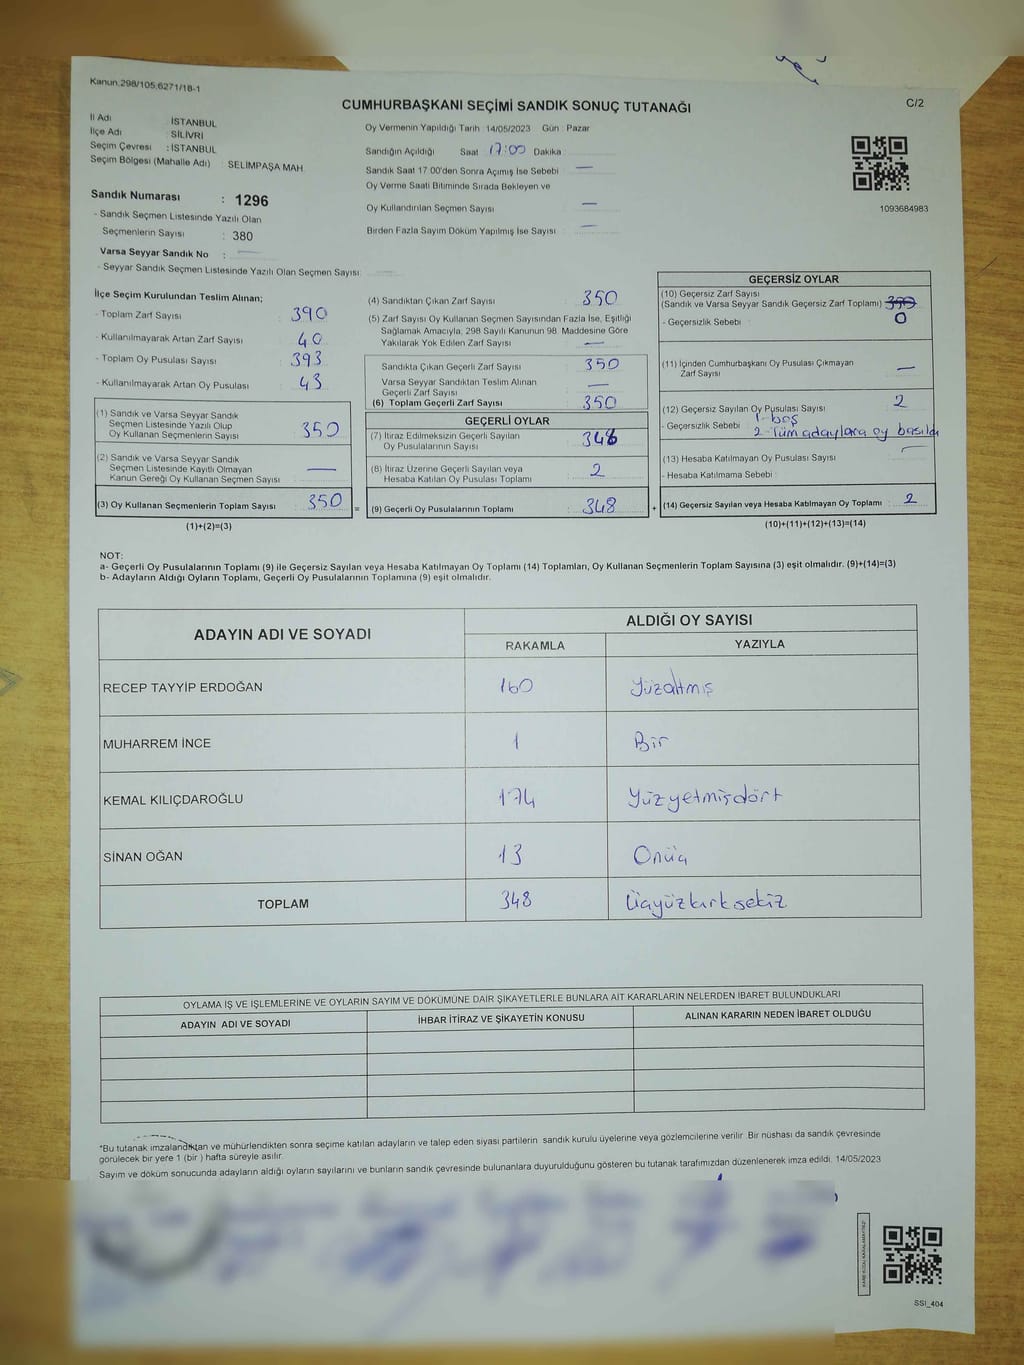 Kanun.298/105,6271/18-1
CUMHURBAŞKANI SEÇİMİ SANDIK SONUÇ TUTANAĞI
C/2
İl Adı : İSTANBUL
İlçe Adı : SİLİVRİ
Seçim Çevresi : İSTANBUL
Seçim Bölgesi (Mahalle Adı) : SELİMPAŞA MAH.
Sandık Numarası : 1296
- Sandık Seçmen Listesinde Yazılı Olan
Seçmenlerin Sayısı : 380
Varsa Seyyar Sandık No :
- Seyyar Sandık Seçmen Listesinde Yazılı Olan Seçmen Sayısı:
Oy Vermenin Yapıldığı Tarih : 14/05/2023 Gün : Pazar
Sandığın Açıldığı Saat 17:00 Dakika
Sandık Saat 17.00'den Sonra Açımış İse Sebebi : —
Oy Verme Saati Bitiminde Sırada Bekleyen ve
Oy Kullandırılan Seçmen Sayısı : —
Birden Fazla Sayım Döküm Yapılmış İse Sayısı : —
1093684983
İlçe Seçim Kurulundan Teslim Alınan;
- Toplam Zarf Sayısı : 390
- Kullanılmayarak Artan Zarf Sayısı : 40
- Toplam Oy Pusulası Sayısı : 393
- Kullanılmayarak Artan Oy Pusulası : 43
(1) Sandık ve Varsa Seyyar Sandık
Seçmen Listesinde Yazılı Olup
Oy Kullanan Seçmenlerin Sayısı : 350
(2) Sandık ve Varsa Seyyar Sandık
Seçmen Listesinde Kayıtlı Olmayan
Kanun Gereği Oy Kullanan Seçmen Sayısı : —
(3) Oy Kullanan Seçmenlerin Toplam Sayısı : 350 =
(1)+(2)=(3)
(4) Sandıktan Çıkan Zarf Sayısı : 350
(5) Zarf Sayısı Oy Kullanan Seçmen Sayısından Fazla İse, Eşitliği
Sağlamak Amacıyla, 298 Sayılı Kanunun 98. Maddesine Göre
Yakılarak Yok Edilen Zarf Sayısı : —
Sandıkta Çıkan Geçerli Zarf Sayısı : 350
Varsa Seyyar Sandıktan Teslim Alınan
Geçerli Zarf Sayısı : —
(6) Toplam Geçerli Zarf Sayısı : 350
GEÇERLİ OYLAR
(7) İtiraz Edilmeksizin Geçerli Sayılan
Oy Pusulalarının Sayısı : 346
(8) İtiraz Üzerine Geçerli Sayılan veya
Hesaba Katılan Oy Pusulası Toplamı : 2
(9) Geçerli Oy Pusulalarının Toplamı : 348 +
GEÇERSİZ OYLAR
(10) Geçersiz Zarf Sayısı
(Sandık ve Varsa Seyyar Sandık Geçersiz Zarf Toplamı) : 350
- Geçersizlik Sebebi : 0
(11) İçinden Cumhurbaşkanı Oy Pusulası Çıkmayan
Zarf Sayısı : —
(12) Geçersiz Sayılan Oy Pusulası Sayısı : 2
- Geçersizlik Sebebi : 1-boş
2-Tüm adaylara oy basıldı
(13) Hesaba Katılmayan Oy Pusulası Sayısı :
- Hesaba Katılmama Sebebi :
(14) Geçersiz Sayılan veya Hesaba Katılmayan Oy Toplamı : 2
(10)+(11)+(12)+(13)=(14)
NOT:
a- Geçerli Oy Pusulalarının Toplamı (9) ile Geçersiz Sayılan veya Hesaba Katılmayan Oy Toplamı (14) Toplamları, Oy Kullanan Seçmenlerin Toplam Sayısına (3) eşit olmalıdır. (9)+(14)=(3)
b- Adayların Aldığı Oyların Toplamı, Geçerli Oy Pusulalarının Toplamına (9) eşit olmalıdır.
ADAYIN ADI VE SOYADI
ALDIĞI OY SAYISI
RAKAMLA YAZIYLA
RECEP TAYYİP ERDOĞAN 160 Yüzaltmış
MUHARREM İNCE 1 Bir
KEMAL KILIÇDAROĞLU 174 Yüzyetmişdört
SİNAN OĞAN 13 Onüç
TOPLAM 348 Üçyüzkırksekiz
OYLAMA İŞ VE İŞLEMLERİNE VE OYLARIN SAYIM VE DÖKÜMÜNE DAİR ŞİKAYETLERLE BUNLARA AİT KARARLARIN NELERDEN İBARET BULUNDUKLARI
ADAYIN ADI VE SOYADI İHBAR İTİRAZ VE ŞİKAYETİN KONUSU ALINAN KARARIN NEDEN İBARET OLDUĞU
*Bu tutanak imzalandıktan ve mühürlendikten sonra seçime katılan adayların ve talep eden siyasi partilerin sandık kurulu üyelerine veya gözlemcilerine verilir. Bir nüshası da sandık çevresinde
görülecek bir yere 1 (bir ) hafta süreyle asılır.
Sayım ve döküm sonucunda adayların aldığı oyların sayılarını ve bunların sandık çevresinde bulunanlara duyurulduğunu gösteren bu tutanak tarafımızdan düzenlenerek imza edildi. 14/05/2023
KARE KODU KARALAMAYINIZ!
SSI_404